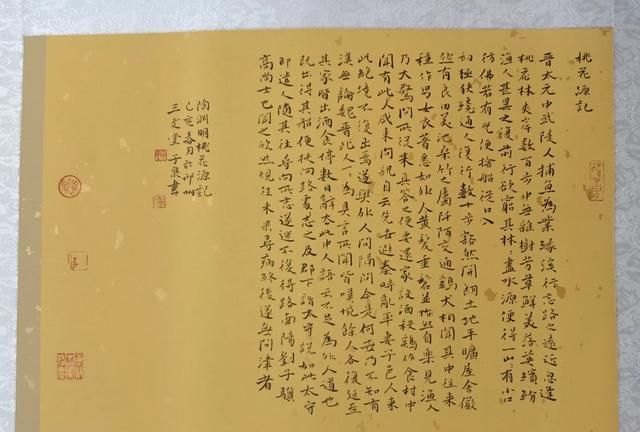 桃花源記
晉太元中武陵人捕魚為業緣溪行忘路之遠近忽逢
桃花林夾岸數百步中無雜樹芳草鮮美落英繽紛
漁人甚異之復前行欲窮其林〻盡水源便得一山〻有小口
彷彿若有光便捨船從口入
初極狹纔通人復行數十步豁然開朗土地平曠屋舍儼
然有良田美池桑竹之屬阡陌交通雞犬相聞其中往來
種作男女衣著悉如外人黃髮垂髫並怡然自樂見漁人
乃大驚問所從來具答之便要還家設酒殺雞作食村中
聞有此人咸來問訊自云先世避秦時亂率妻子邑人來
此絕境不復出焉遂與外人間隔問今是何世乃不知有
漢無論魏晉此人一〻為具言所聞皆嘆惋餘人各復延至
其家皆出酒食停數日辭去此中人語云不足為外人道也
既出得其船便扶向路處〻志之及郡下詣太守說如此太守
即遣人隨其往尋向所志遂迷不復得路南陽劉子驥
高尚士也聞之欣然規往未果尋病終後遂無問津者
陶淵明桃花源記
己亥春月於邢州
三文堂 子泉書